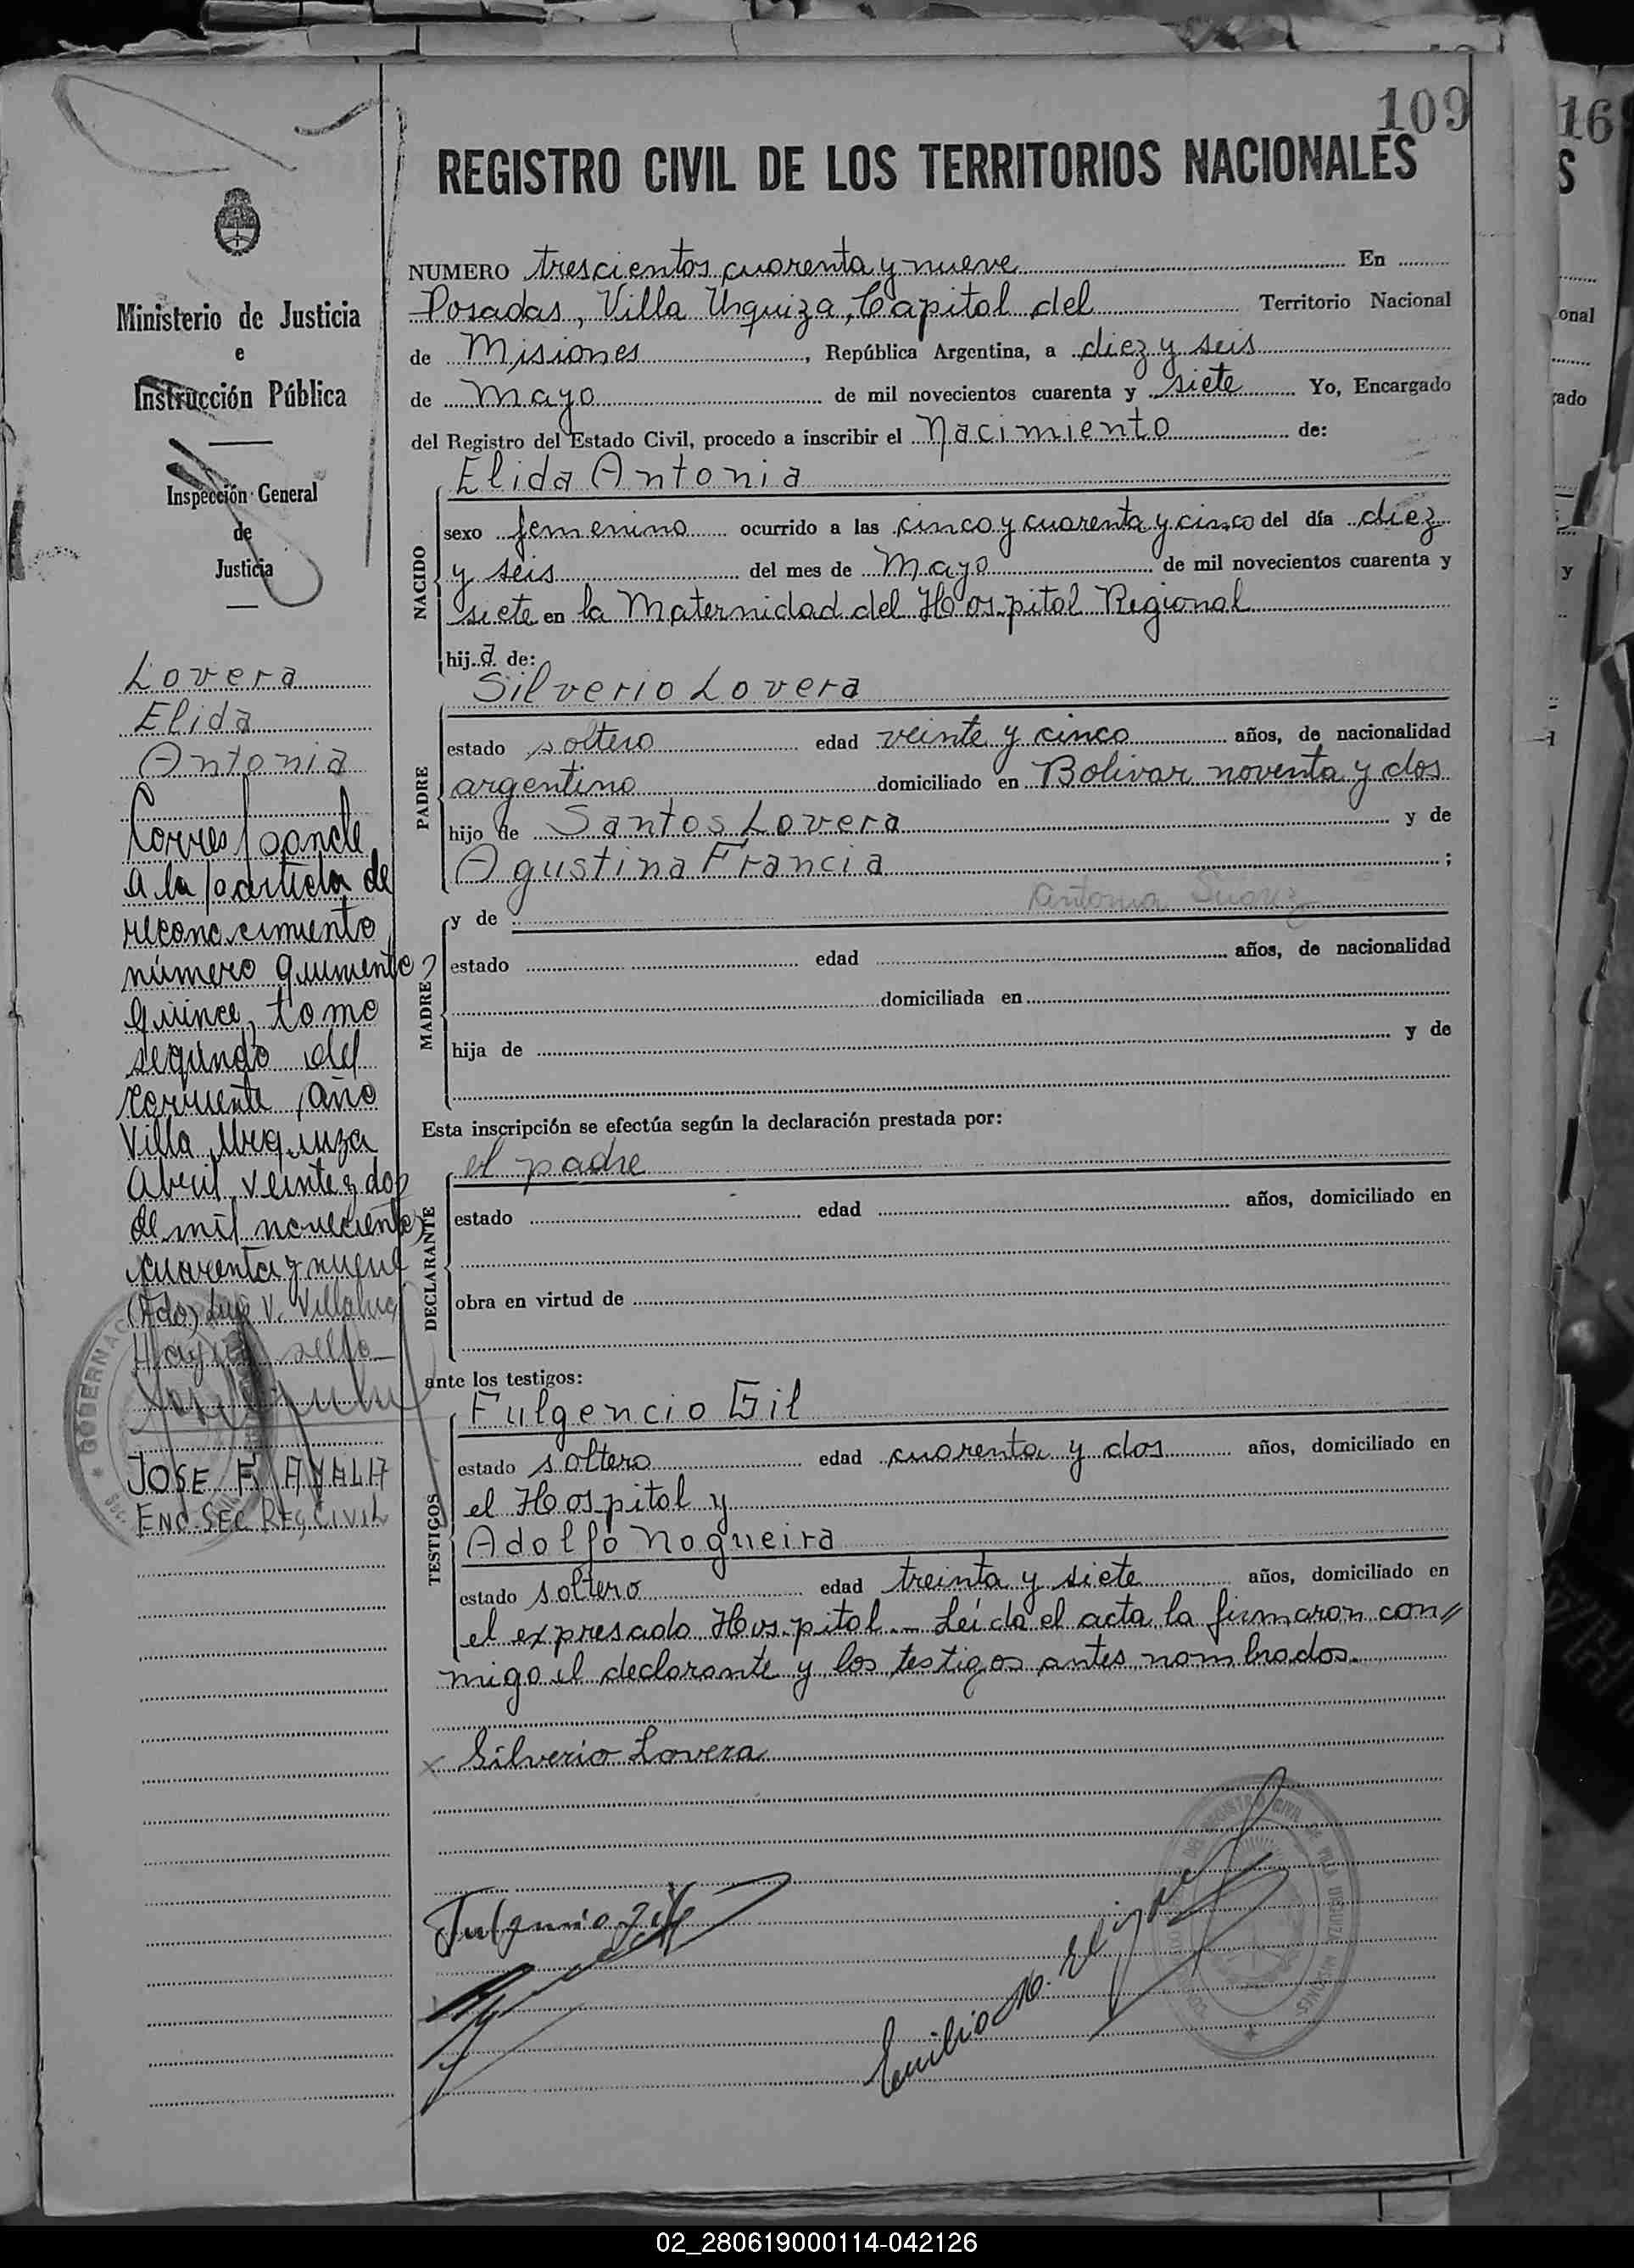 109
16
REGISTRO CIVIL DE LOS TERRITORIOS NACIONALES
Ministerio de Justicia
e
Instrucción Pública
Inspección General
de
Justicia
Lovera
Elida
Antonia
Corresponde
a la partida de
reconocimiento
número quinientos
quince, tomo
segundo del
corriente año
Villa Urquiza
Abril veinte y dos
de mil novecientos
cuarenta y nueve
(Fdo) Luis V. Villalba
Hay un sello
JOSE F. AYALA
ENC. SEC. REG. CIVIL
NUMERO trescientos cuarenta y nueve En
Posadas, Villa Urquiza, Capital del Territorio Nacional
de Misiones, República Argentina, a diez y seis
de Mayo de mil novecientos cuarenta y siete Yo, Encargado
del Registro del Estado Civil, procedo a inscribir el Nacimiento de:
NACIDO
Elida Antonia
sexo femenino ocurrido a las cinco y cuarenta y cinco del día diez
y seis del mes de Mayo de mil novecientos cuarenta y
siete en la Maternidad del Hospital Regional
hija de:
PADRE
Silverio Lovera
estado soltero edad veinte y cinco años, de nacionalidad
argentino domiciliado en Bolivar noventa y dos
hijo de Santos Lovera y de
Agustina Francia ;
MADRE
y de Antonia Suarez
estado edad años, de nacionalidad
domiciliada en
hija de y de
Esta inscripción se efectúa según la declaración prestada por:
DECLARANTE
el padre
estado edad años, domiciliado en
obra en virtud de
ante los testigos:
TESTIGOS
Fulgencio Gil
estado soltero edad cuarenta y dos años, domiciliado en
el Hospital y
Adolfo Nogueira
estado soltero edad treinta y siete años, domiciliado en
el expresado Hospital.- Leída el acta la firmaron con//
migo el declarante y los testigos antes nombrados.
x Silverio Lovera
Fulgencio Gil
Emilio
02_280619000114-042126